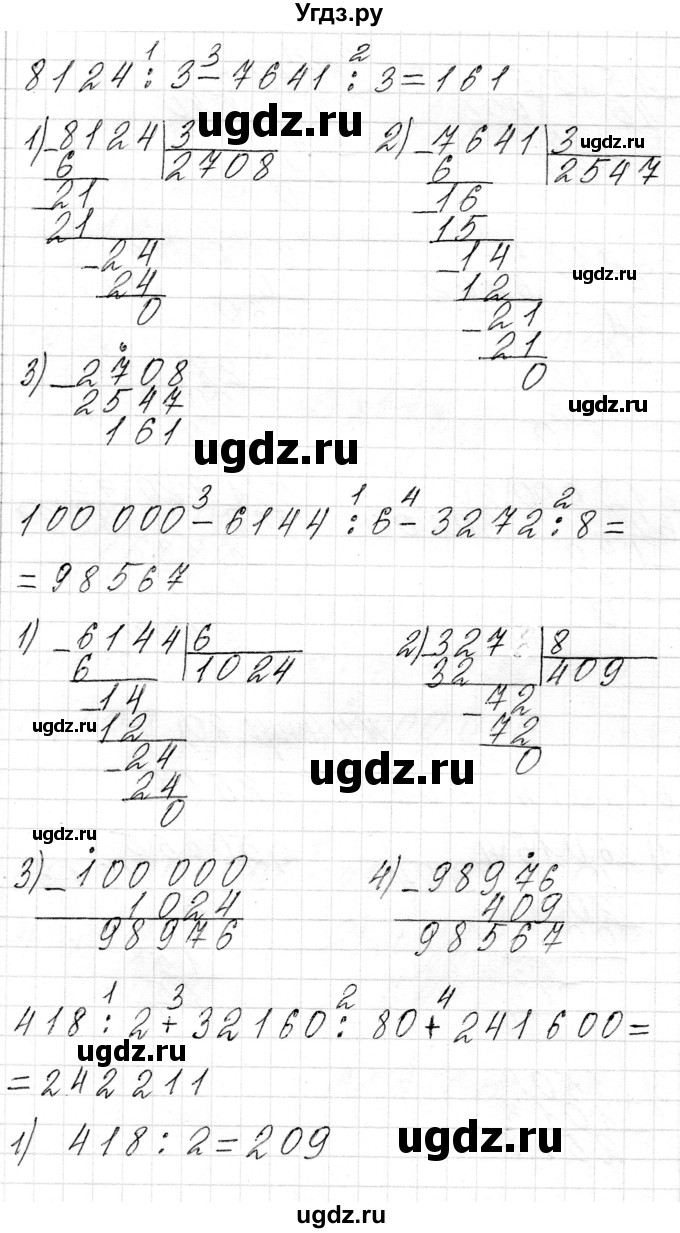 Угдз.ру
8124 : 3 - 7641 : 3 = 161
1 3 2
1) - 8124 | 3
6 2708
- 21
21
- 24
24
0
2) - 7641 | 3
6 2547
- 16
15
- 14
12
- 21
21
0
ugdz.ru
ugdz.ru
ugdz.ru
ugdz.ru
3) - 2708
2547
161
ugdz.ru
100 000 - 6144 : 6 - 3272 : 8 =
3 1 4 2
= 98567
1) - 6144 | 6
6 1024
- 14
12
- 24
24
0
2) - 327 | 8
32 409
- 72
72
0
ugdz.ru
ugdz.ru
ugdz.ru
3) - 100 000
1024
98976
4) - 98976
409
98567
418 : 2 + 32160 : 80 + 241 600 =
1 3 2 4
ugdz.ru
= 242 211
1) 418 : 2 = 209
ugdz.ru
ugdz.ru